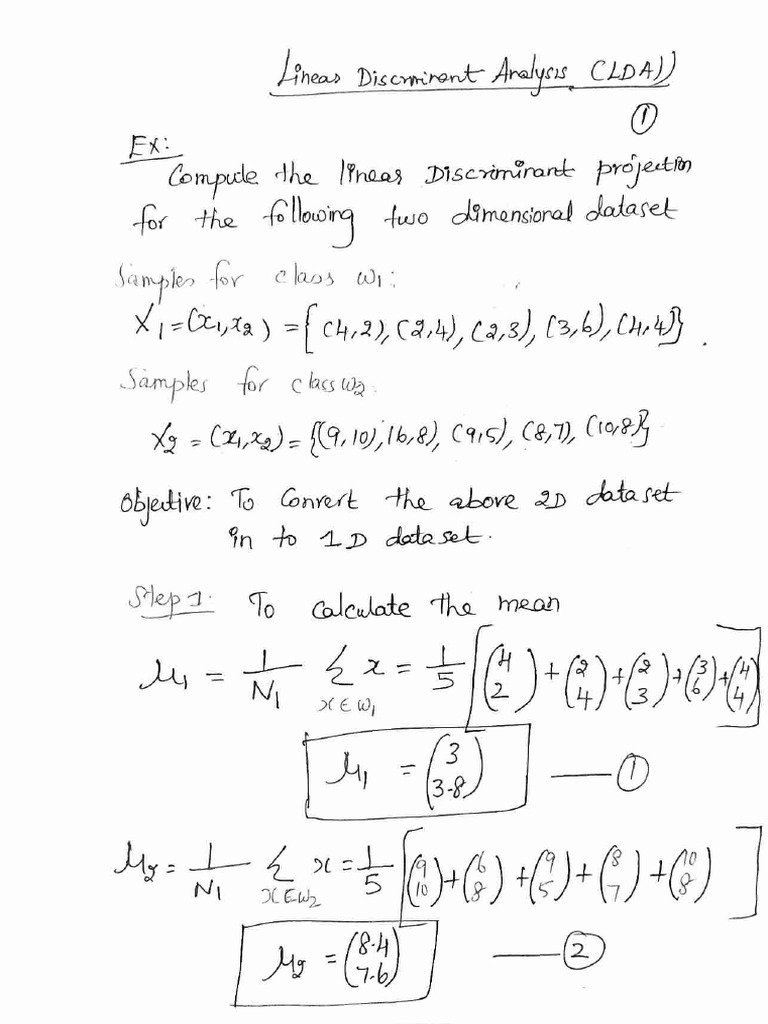 Linear Discriminant Analysis (LDA))
①
Ex:
Compute the linear Discriminant projection
for the following two dimensional dataset
Samples for class ω₁:
X₁=(x₁,x₂) = {(4,2),(2,4),(2,3),(3,6),(4,4)}.
Samples for class ω₂.
X₂ = (x₁,x₂) = {(9,10),(6,8),(9,5),(8,7),(10,8)}
Objective: To Convert the above 2D dataset
in to 1D dataset.
Step 1. To calculate the mean
μ₁ = 1/N₁ Σ_{x∈ω₁} x = 1/5 [(4 2)+(2 4)+(2 3)+(3 6)+(4 4)]
μ₁ = (3 3.8) —— ①
μ₂ = 1/N₁ Σ_{x∈ω₂} x = 1/5 [(9 10)+(6 8)+(9 5)+(8 7)+(10 8)]
μ₂ = (8.4 7.6) —— ②